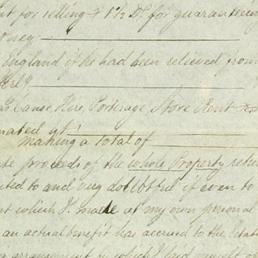 for selling & 1½ D° for guaranteeing
England if he had been relieved from
Canoe Hire, Porterage, Store Rent
making a total of
proceeds of the whole Property
to and very doubtful if even to
which I made at my own personal
an actual benefit has accrued to the Estate
arrangement in which I had myself